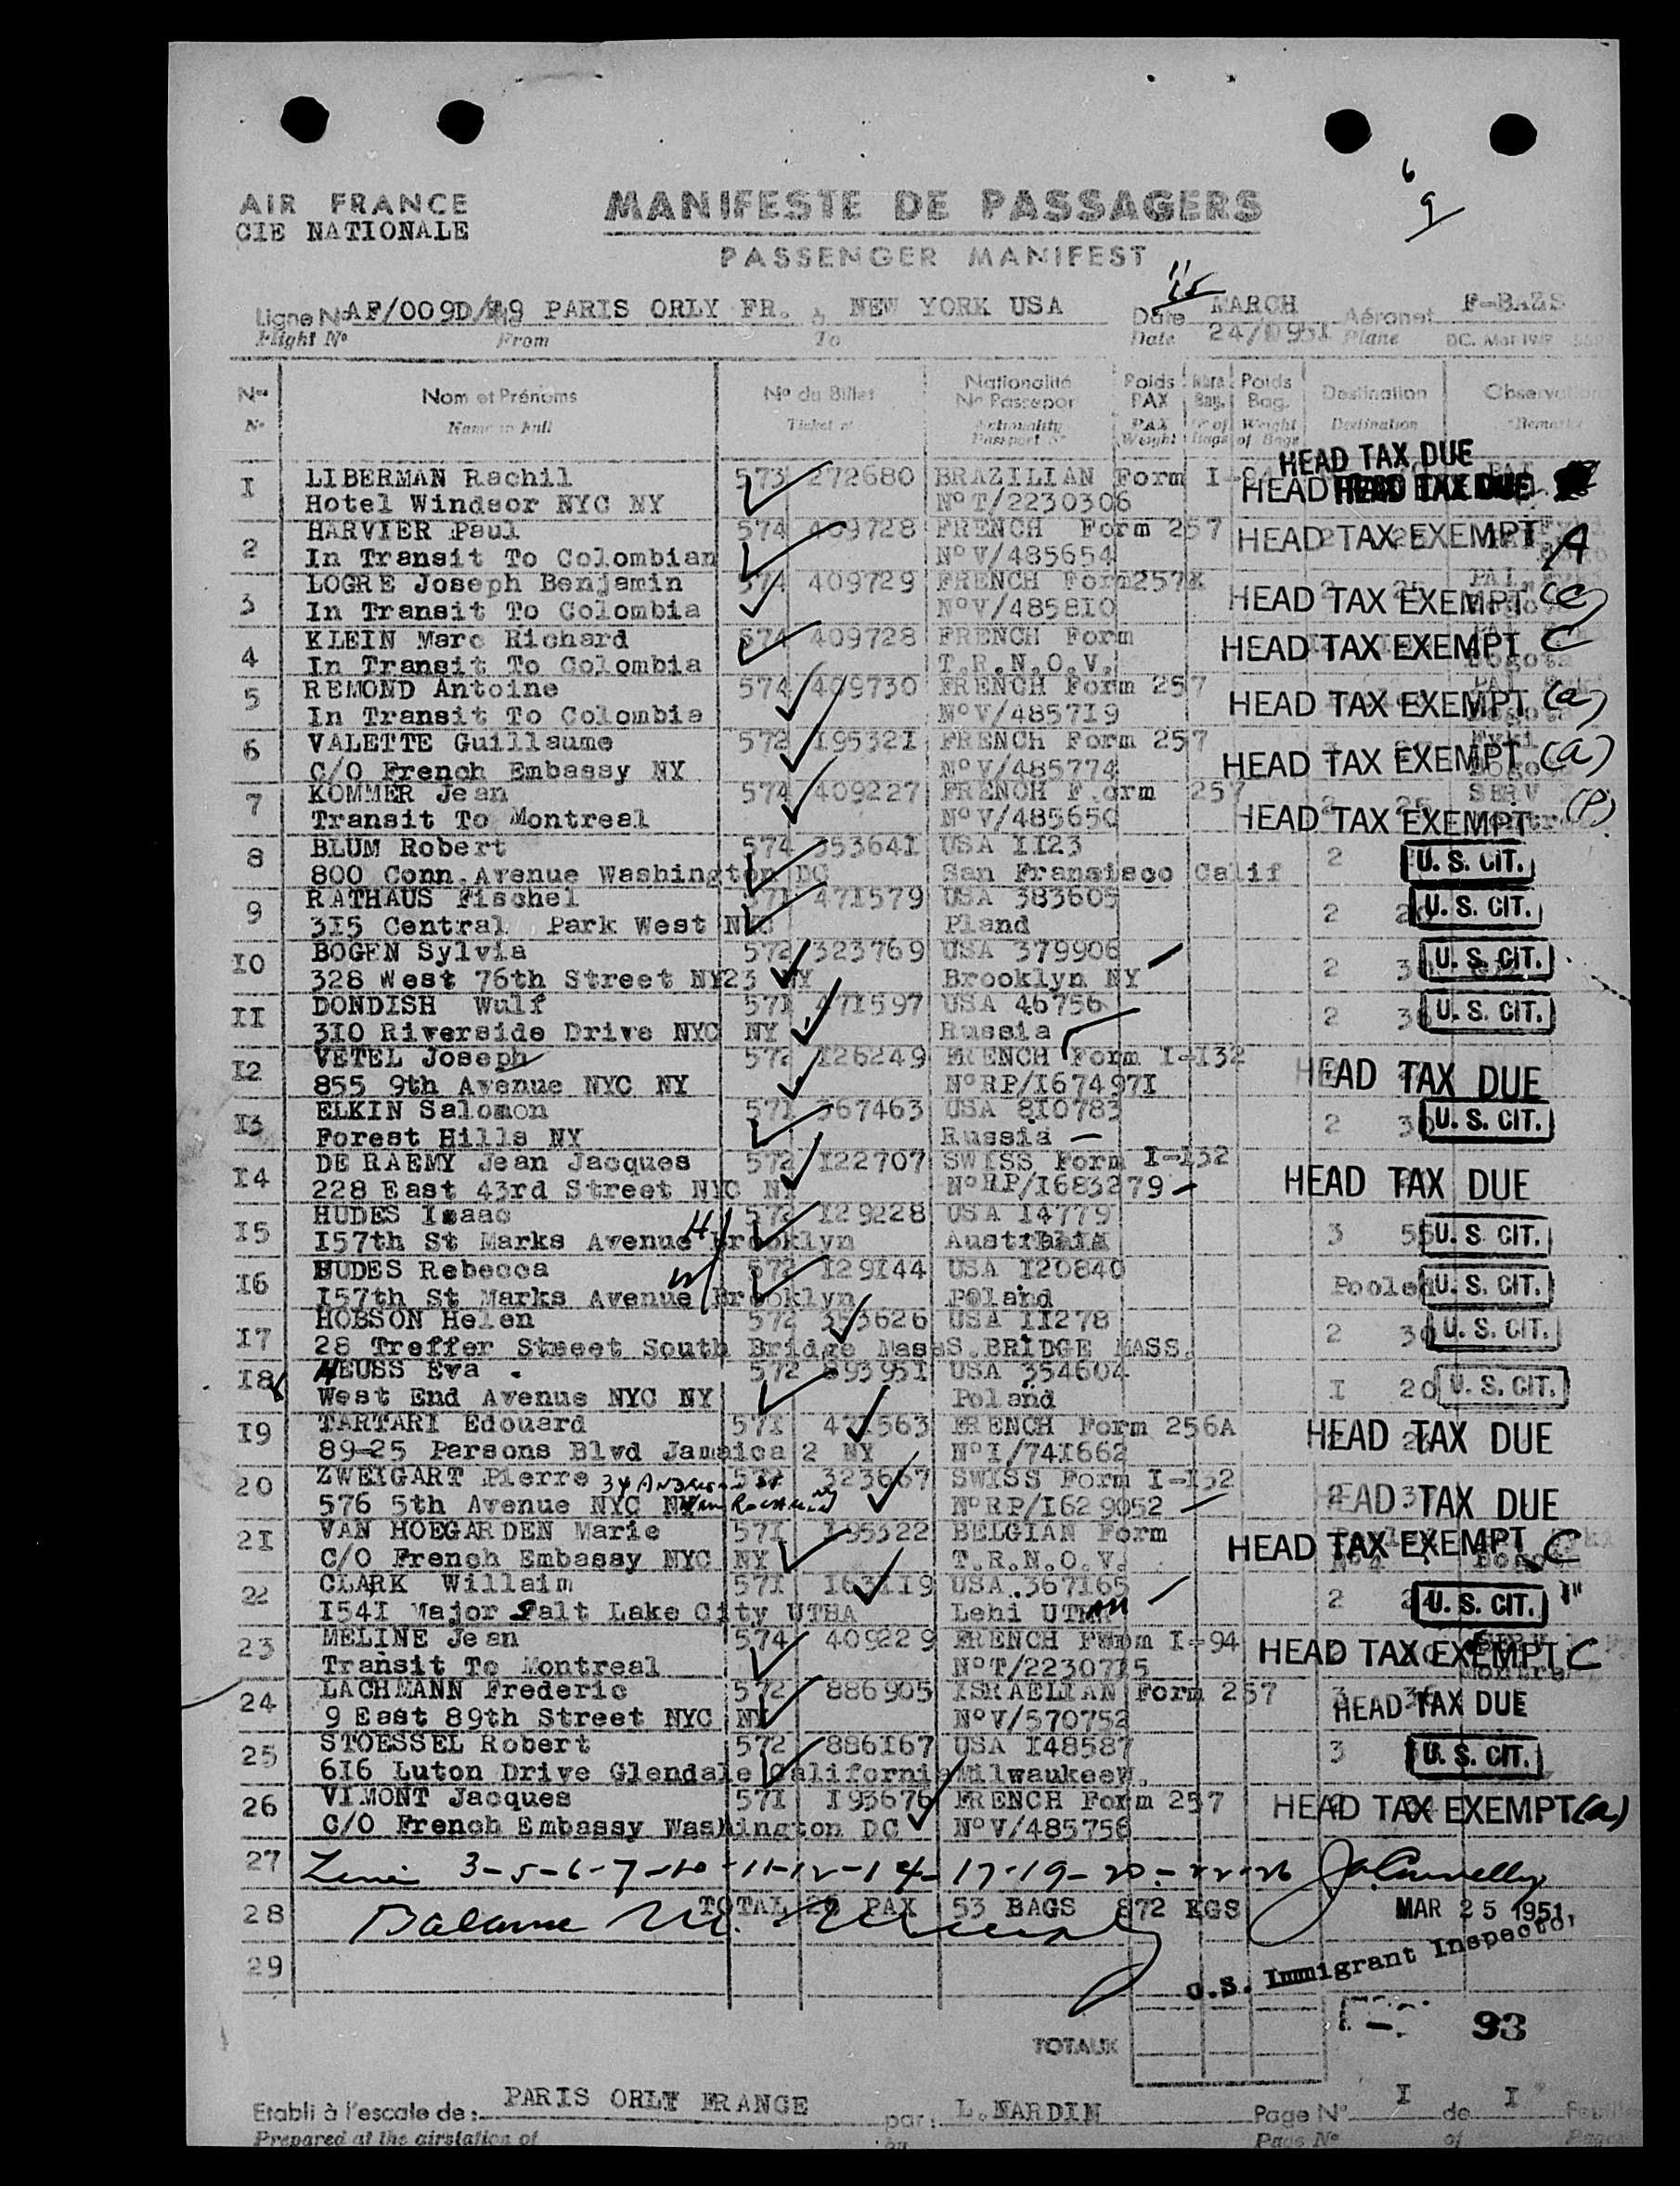 6
9
AIR FRANCE
CIE NATIONALE
MANIFESTE DE PASSAGERS
PASSENGER MANIFEST
Ligne No AF/009D/ PARIS ORLY FR. à NEW YORK USA Date MARCH 24/ 1951 Aéronef F-BAZS
Flight No From To Date Plane
Nos Nom et Prénoms No du Billet Nationalité Poids Nbre Poids Destination Observation
No Passeport PAX Bag. Bag.
No Name in full Ticket no Nationality PAX Nr of Weight Destination Remarks
Passport No Weight Bags of Bags
HEAD TAX DUE
I LIBERMAN Rachil 573 272680 BRAZILIAN Form I-94 HEAD
Hotel Windsor NYC NY No T/2230306
2 HARVIER Paul 574 409728 FRENCH Form 257 HEAD TAX EXEMPT A
In Transit To Colombian No V/485654
3 LOGRE Joseph Benjamin 574 409729 FRENCH Form257 HEAD TAX EXEMPT (c)
In Transit To Colombia No V/485810
4 KLEIN Marc Richard 574 409728 FRENCH Form HEAD TAX EXEMPT C
In Transit To Colombia T.R.N.O.V. Bogota
5 REMOND Antoine 574 409730 FRENCH Form 257 HEAD TAX EXEMPT (a)
In Transit To Colombia No V/485719
6 VALETTE Guillaume 572 195321 FRENCh Form 257 HEAD TAX EXEMPT (a)
C/O French Embassy NY No V/485774
7 KOMMER Jean 574 409227 FRENCH F.orm 257 SERV
Transit To Montreal No V/485650 HEAD TAX EXEMPT (P)
8 BLUM Robert 574 353641 USA II23 2 U. S. CIT.
800 Conn.Avenue Washington DC San Fransisco Calif
9 RATHAUS Fischel 571 471579 USA 383605 2 U. S. CIT.
3I5 Central Park West NYC Pland
IO BOGEN Sylvia 572 323769 USA 379906 2 U. S. CIT.
328 West 76th Street NY23 NY Brooklyn NY
II DONDISH Wulf 571 471597 USA 46756 2 U. S. CIT.
3IO Riverside Drive NYC NY Russia
I2 VETEL Joseph 572 I26249 FRENCH Form I-I32 HEAD TAX DUE
855 9th Avenue NYC NY No RP/I67497I
I3 ELKIN Salomon 571 367463 USA 8I0783 2 30 U. S. CIT.
Forest Hills NY Russia
I4 DE RAEMY Jean Jacques 572 I22707 SWISS Form I-I32 HEAD TAX DUE
228 East 43rd Street NYC NY No RP/I683279
I5 HUDES Isaac 572 I29228 USA I4779 3 55 U. S. CIT.
I57th St Marks Avenue Brooklyn
I6 HUDES Rebecca 572 I29I44 USA I20840 Pooled U. S. CIT.
I57th St Marks Avenue Brooklyn Poland
I7 HOBSON Helen 572 353626 USA II278 2 30 U. S. CIT.
28 Treffer Street South Bridge Mass S.BRIDGE MASS.
I8 HEUSS Eva 572 89395I USA 354604 I 20 U. S. CIT.
West End Avenue NYC NY Poland
I9 TARTARI Edouard 57I 47I563 FRENCH Form 256A HEAD TAX DUE
89-25 Parsons Blvd Jamaica 2 NY No I/74I662
20 ZWEIGART Pierre 572 323667 SWISS Form I-I32 HEAD TAX DUE
576 5th Avenue NYC NY No RP/I629052
2I VAN HOEGARDEN Marie 57I I95322 BELGIAN Form HEAD TAX EXEMPT C
C/O French Embassy NYC NY T.R.N.O.V.
22 CLARK Willaim 57I I63II9 USA.367I65 2 U. S. CIT.
I54I Major Salt Lake City UTHA Lehi
23 MELINE Jean 574 409229 FRENCH Form I-94 HEAD TAX EXEMPT C
Transit To Montreal No T/2230775
24 LACHMANN Frederic 572 886905 ISRAELIAN Form 257 HEAD TAX DUE
9 East 89th Street NYC NY No V/570752
25 STOESSEL Robert 572 886I67 USA I48587 3 U. S. CIT.
6I6 Luton Drive Glendale California MilwaukeeW.
26 VIMONT Jacques 57I I93676 FRENCH Form 257 HEAD TAX EXEMPT (a)
C/O French Embassy Washington DC No V/485756
27 3-5-6-7-10-11-12-14-17-19-20-22-26
28 TOTAL 26 PAX 53 BAGS 872 KGS MAR 25 1951
29 U.S. Immigrant Inspector
93
TOTAUX
Etabli à l'escale de: PARIS ORLY FRANCE par: L.NARDIN Page No I de I
Prepared at the airstation of by Page No of Pages